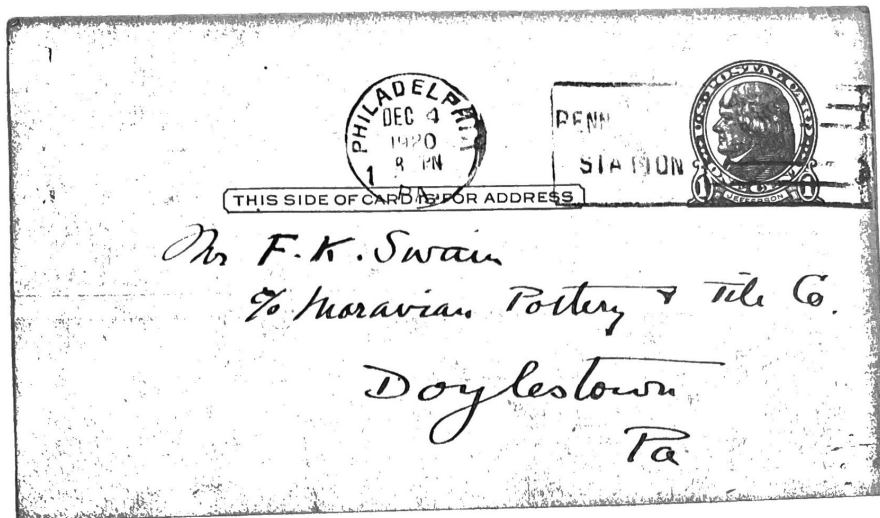 PHILADELPHIA
DEC 4
1920
1 8 PM
PA.
PENN
STATION
U.S. POSTAL CARD
1 1
JEFFERSON
THIS SIDE OF CARD IS FOR ADDRESS
Mr F. K. Swain
℅ Moravian Pottery & Tile Co.
Doylestown
Pa